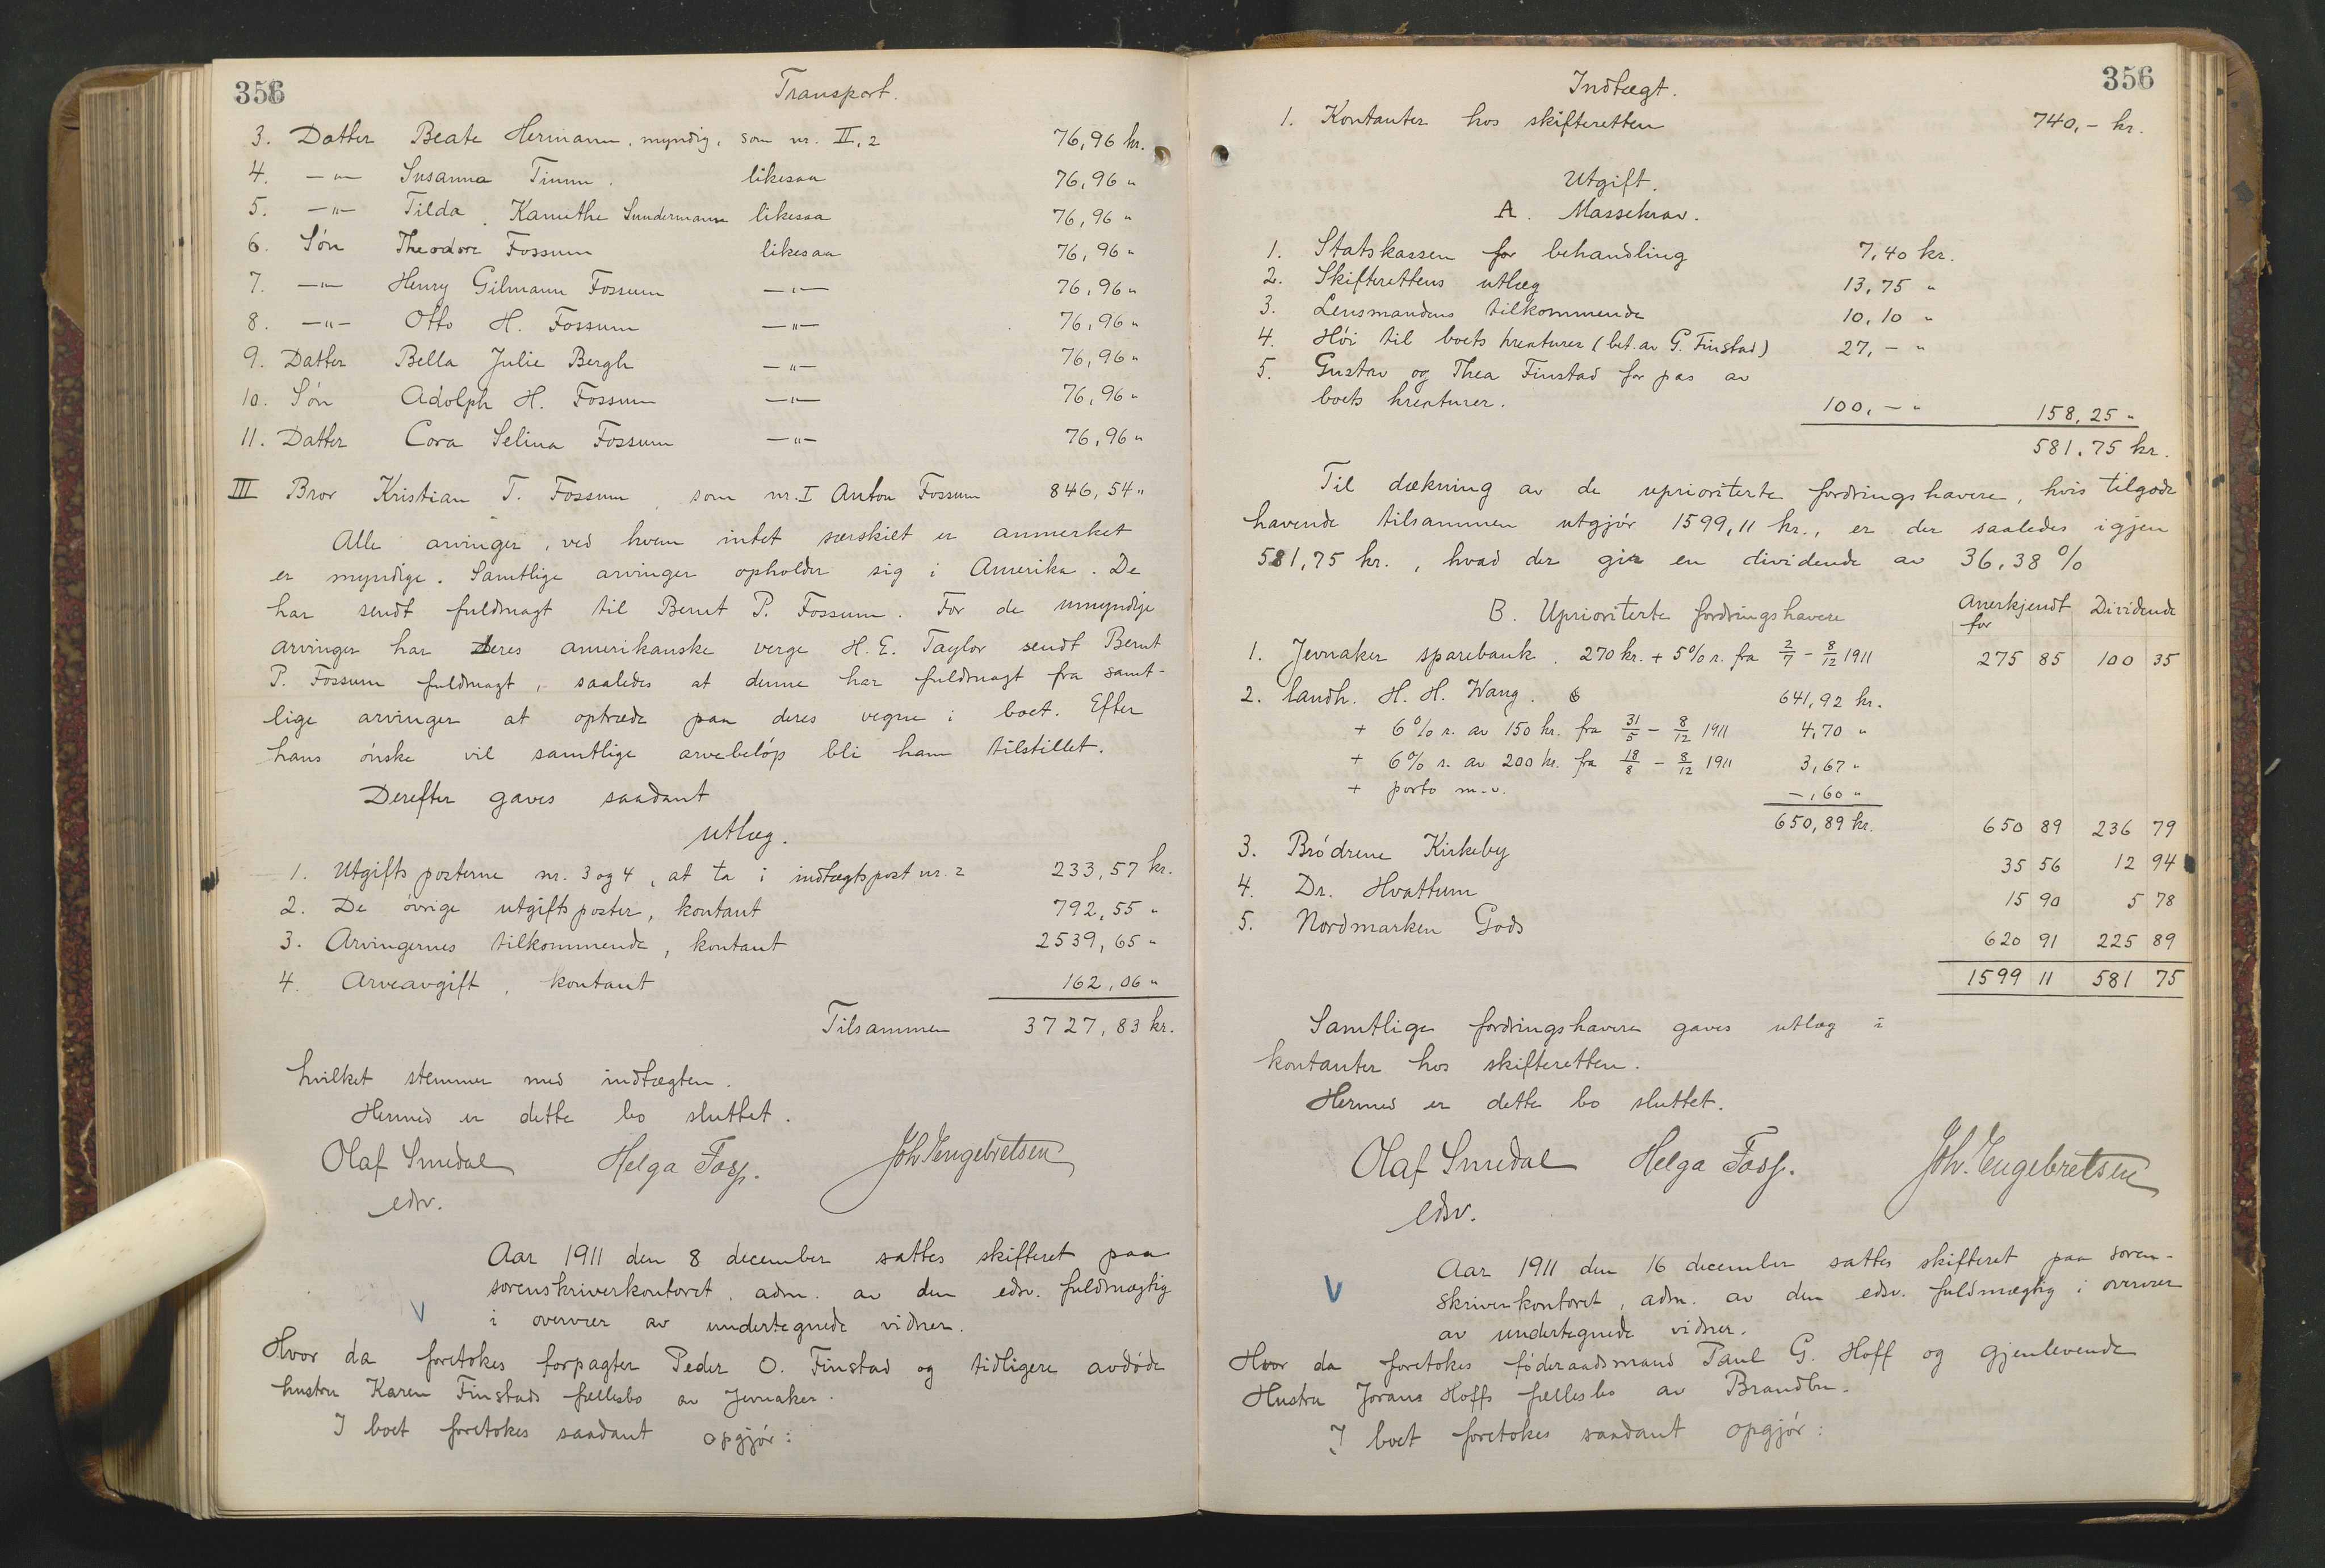 356
Transport.
3. Datter Beate Hermann, myndig, som nr. II, 2 76,96 kr.
4. -"- Susanna Timm. likesaa 76,96 "
5. -"- Tilda Kamithe Sundermann likesaa 76,96 "
6. Søn Theodore Fossum likesaa 76,96 "
7. -"- Henry Gilmann Fossum -"- 76,96 "
8. -"- Otto H. Fossum -"- 76,96 "
9. Datter Bella Julie Bergh -"- 76,96 "
10. Søn Adolph H. Fossum -"- 76,96 "
11. Datter Cora Selina Fossum -"- 76,96 "
III Bror Kristian T. Fossum som nr. I Anton Fossum 846,54 "
Alle arvinger, ved hvem intet særskilt er anmerket
er myndige. Samtlige arvinger opholder sig i Amerika. De
har sendt fuldmagt til Bernt P. Fossum. For de umyndige
arvinger har deres amerikanske verge H. E. Taylor sendt Bernt
P. Fossum fuldmagt, saaledes at denne har fuldmagt fra samt-
lige arvinger at optræde paa deres vegne i boet. Efter
hans ønske vil samtlige arvebeløp bli ham tilstillet.
Derefter gaves saadant
utlæg.
1. Utgiftsposterne nr. 3 og 4, at ta i indtægtspost nr. 2 233,57 kr.
2. De øvrige utgiftsposter, kontant 792,55 "
3. Arvingernes tilkommende, kontant 2539,65 "
4. Arveavgift, kontant 162,06 "
Tilsammen 3727,83 kr.
hvilket stemmer med indtægten.
Hermed er dette bo sluttet.
Olaf Smedal Helga Fass. Joh. Engebretsen
edsv.
Aar 1911 den 8 december sattes skifteret paa
sorenskriverkontoret, adm. av den edsv. fuldmægtig
V
i overvær av undertegnede vidner.
Hvor da foretokes forpagter Peder O. Finstad og tidligere avdøde
hustru Karen Finstads fællesbo av Jevnaker.
I boet foretokes saadant opgjør:
356
Indtægt.
1. Kontanter hos skifteretten 740,- kr.
Utgift.
A. Massekrav.
1. Statskassen for behandling 7,40 kr.
2. Skifterettens utlæg 13,75 "
3. Lensmandens tilkommende 10,10 "
4. Høi til boets kreaturer (bet. av G. Finstad) 27,- "
5. Gustav og Thea Finstad for pas av
boets kreaturer. 100,- " 158,25 "
581,75 kr.
Til dækning av de uprioriterte fordringshavere, hvis tilgode
havende tilsammen utgjør 1599,11 kr., er der saaledes igjen
581,75 kr., hvad der gir en dividende av 36,38 %
B. Uprioriterte fordringshavere Anerkjendt for Dividende
1. Jevnaker sparebank. 270 kr. + 5% r. fra 2/7 - 8/12 1911 275 85 100 35
2. Landh. H. H. Wang. 641,92 kr.
+ 6% r. av 150 kr. fra 31/5 - 8/12 1911 4,70 "
+ 6% r. av 200 kr. fra 18/8 - 8/12 1911 3,67 "
+ porto m.v. -,60 "
650,89 kr. 650 89 236 79
3. Brødrene Kirkeby 35 56 12 94
4. Dr. Hvattum 15 90 5 78
5. Nordmarken Gods 620 91 225 89
1599 11 581 75
Samtlige fordringshavere gaves utlæg i
kontanter hos skifteretten.
Hermed er dette bo sluttet.
Olaf Smedal Helga Fass. Joh. Engebretsen
edsv.
Aar 1911 den 16 december sattes skifteret paa soren-
V
skriverkontoret, adm. av den edsv. fuldmægtig i overvær
av undertegnede vidner.
Hvor da foretokes føderaadsmand Paul G. Hoff og gjenlevende
Hustru Jorans Hoffs fællesbo av Brandbu.
I boet foretokes saadant opgjør: